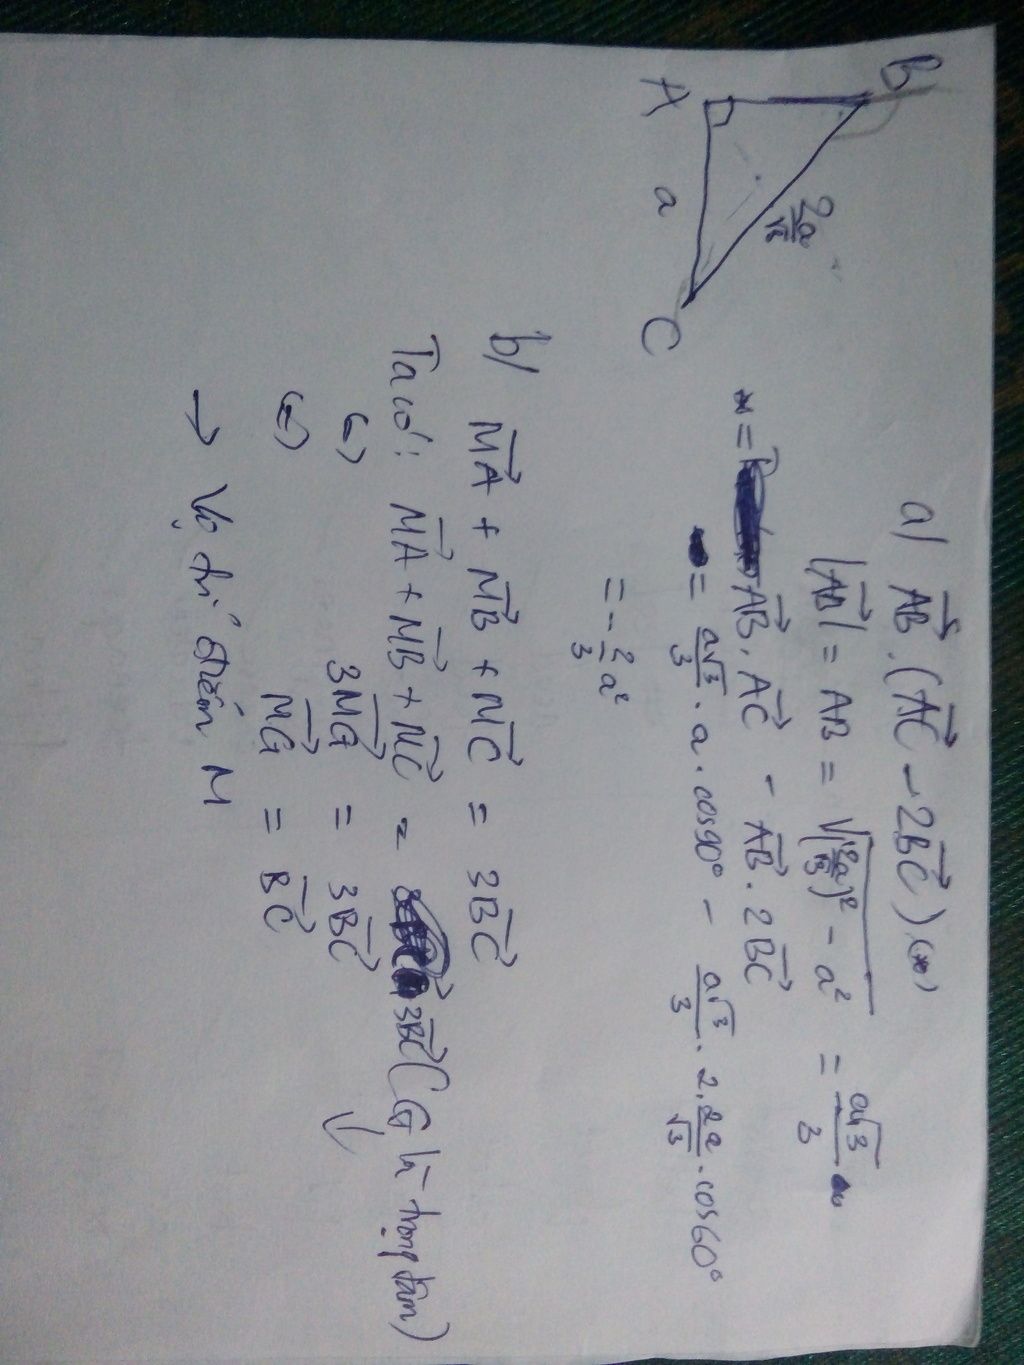 B
A
a
2a/√3
C
a) $\overrightarrow{AB}.(\overrightarrow{AC} - 2\overrightarrow{BC})$ (*)
$|\overrightarrow{AB}| = AB = \sqrt{(\frac{2a}{\sqrt{3}})^2 - a^2} = \frac{a\sqrt{3}}{3}$
* = $\overrightarrow{AB}.\overrightarrow{AC} - \overrightarrow{AB}.2\overrightarrow{BC}$
= $\frac{a\sqrt{3}}{3}.a.cos90° - \frac{a\sqrt{3}}{3}.2.\frac{2a}{\sqrt{3}}.cos60°$
= $-\frac{2}{3}a^2$
b) $\overrightarrow{MA} + \overrightarrow{MB} + \overrightarrow{MC} = 3\overrightarrow{BC}$
Ta có: $\overrightarrow{MA} + \overrightarrow{MB} + \overrightarrow{MC} = 3\overrightarrow{BC}$ (G là trọng tâm)
(=) $3\overrightarrow{MG} = 3\overrightarrow{BC}$
(=) $\overrightarrow{MG} = \overrightarrow{BC}$
→ Vị trí điểm M